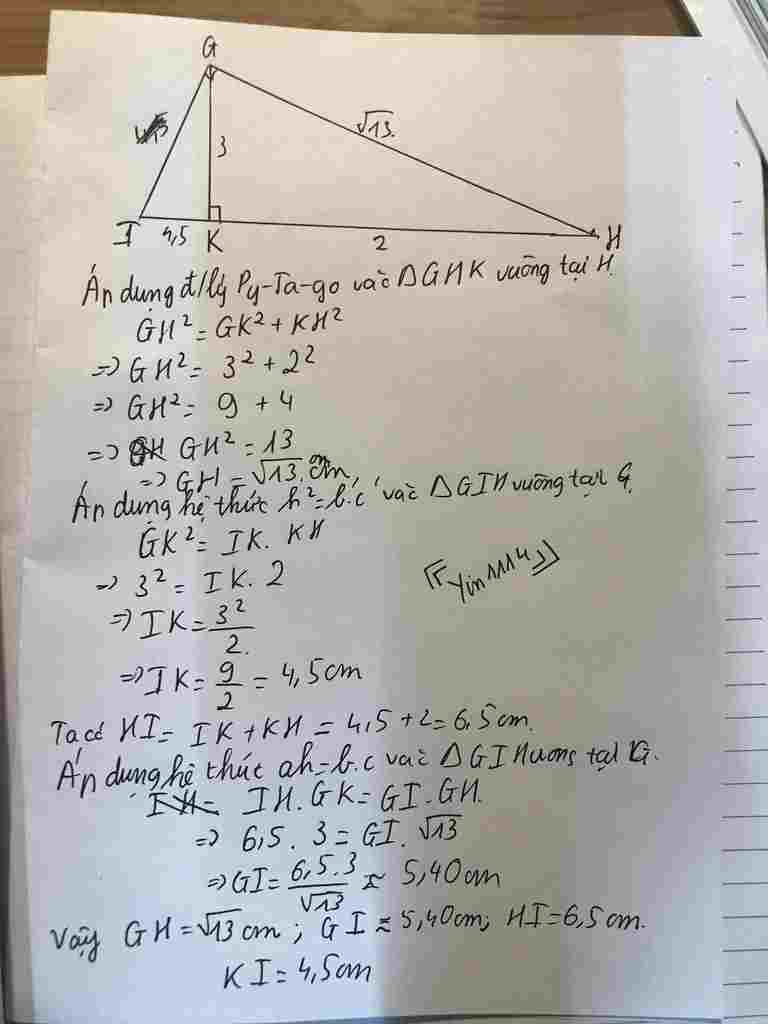 G
3
√13.
I
4,5
K
2
H
Áp dụng đ/lý Py-Ta-go vào ΔGHK vuông tại H.
GH² = GK² + KH²
=> GH² = 3² + 2²
=> GH² = 9 + 4
=> GH² = 13
=> GH = √13. cm
Áp dụng hệ thức h² = b'.c' vào ΔGIH vuông tại G.
GK² = IK. KH
=> 3² = IK. 2
=> IK = 3²/2.
=> IK = 9/2 = 4,5cm
Ta có HI = IK + KH = 4,5 + 2 = 6,5cm.
Áp dụng hệ thức ah = b.c vào ΔGIH uông tại G.
IH. GK = GI. GH.
=> 6,5. 3 = GI. √13
=> GI = 6,5.3/√13 ≈ 5,40cm
Vậy GH = √13 cm; GI ≈ 5,40cm; HI = 6,5cm.
KI = 4,5cm